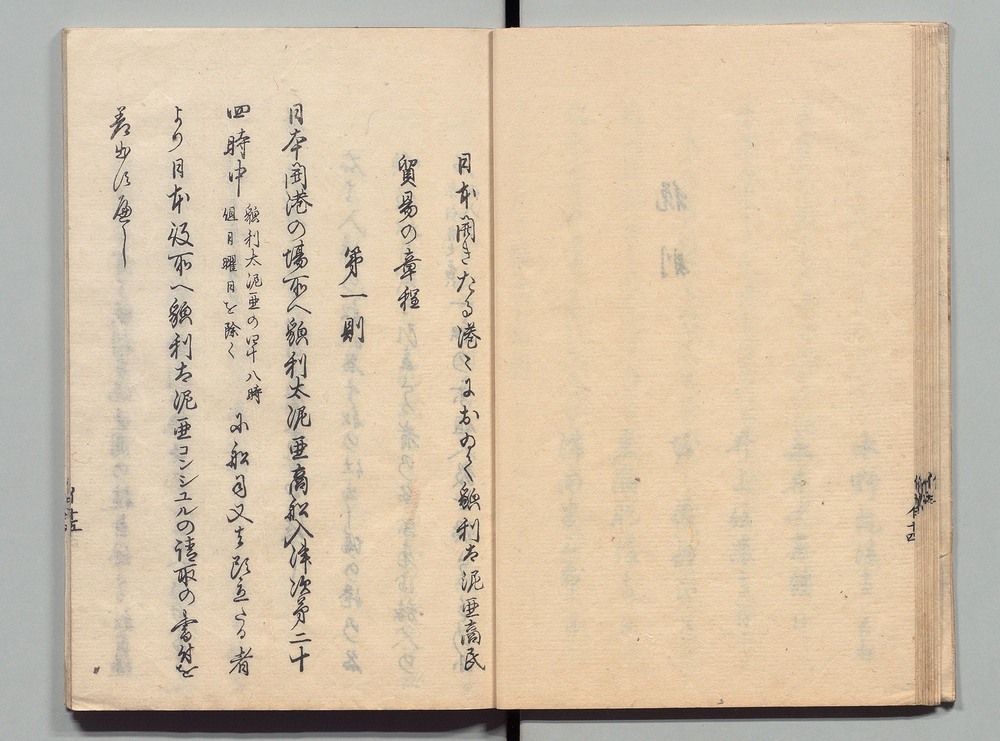 日本開きたる港々におゐて貌利太泥亜商民
貿易の章程
第一則
日本開港の場所へ貌利太泥亜商船入津次第二十
四時中
貌利太泥亜の
八時
但日曜日を除く
に船司又は頭立たる者
より日本役所へ貌利太泥亜コンシュルの請取の書付を
差出す遍し